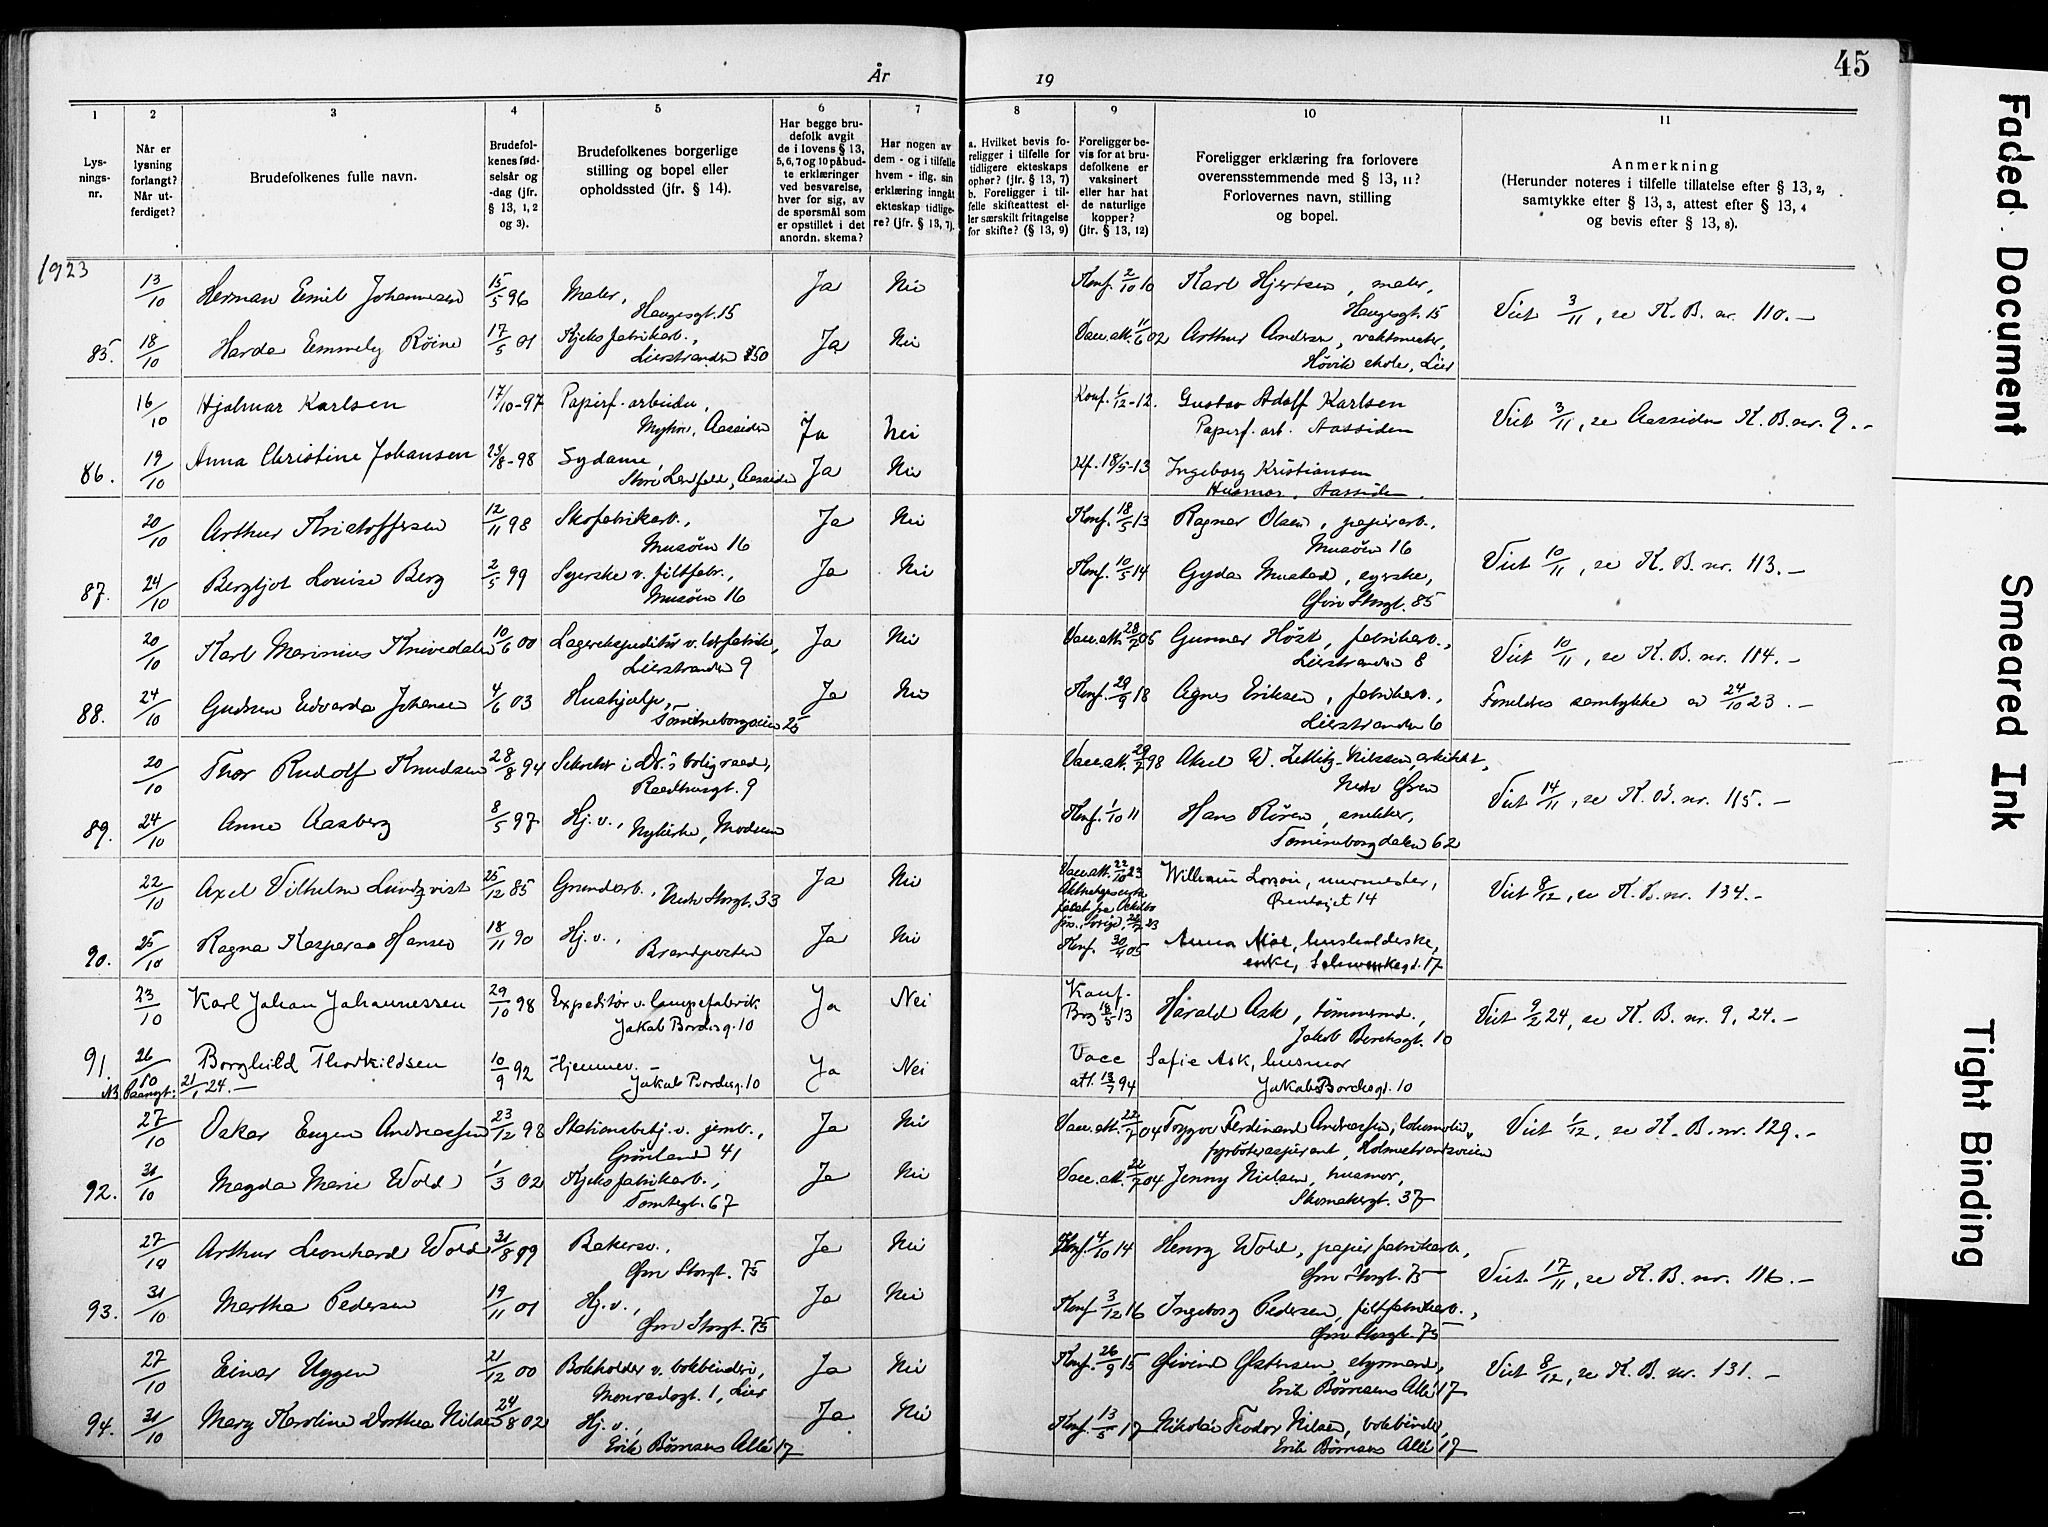 År 19
45
1
2
3
4
5
6
7
8
9
10
11
Lys-
nings-
nr.
Når er
lysning
forlangt?
Når ut-
ferdiget?
Brudefolkenes fulle navn.
Brudefol-
kenes fød-
selsår og
-dag (jfr.
§ 13, 1, 2
og 3).
Brudefolkenes borgerlige
stilling og bopel eller
opholdssted (jfr. § 14).
Har begge bru-
defolk avgit
de i lovens § 13,
5, 6, 7 og 10 påbud-
te erklæringer
ved besvarelse,
hver for sig, av
de spørsmål som
er opstillet i det
anordn. skema?
Har nogen av
dem - og i tilfelle
hvem - iflg. sin
erklæring inngåt
ekteskap tidlige-
re? (jfr. § 13, 7).
a. Hvilket bevis fo-
religger i tilfelle for
tidligere ekteskaps
ophør? (jfr. § 13, 7)
b. Foreligger i til-
felle skifteattest el-
ler særskilt fritagelse
for skifte? (§ 13, 9)
Foreligger be-
vis for at bru-
defolkene er
vaksinert
eller har hat
de naturlige
kopper?
(jfr. § 13, 12)
Foreligger erklæring fra forlovere
overensstemmende med § 13, 11?
Forlovernes navn, stilling
og bopel.
Anmerkning
(Herunder noteres i tilfelle tillatelse efter § 13, 2,
samtykke efter § 13, 3, attest efter § 13, 4
og bevis efter § 13, 8).
1923
13/10 Herman Emil Johannesen 15/5 96 Maler, Haugesgt. 15 Ja Nei Konf. 2/10 10 Karl Hjertsen, maler, Haugesgt. 15 Viet 3/11, se K. B. nr. 110.-
85. 18/10 Harda Emmely Röine 17/5 01 Kjeksfabrikarb., Lierstranden 150 Ja Nei Vacc.att. 11/6 02 Arthur Andersen, vaktmester, Høvik skole, Lier
16/10 Hjalmar Karlsen 17/10-97 Papirf. arbeider, Myhre, Aassiden Ja Nei Konf. 1/12-12. Gustav Adolf Karlsen Papirf. arb. Aassiden Viet 3/11, se Aassiden K. B. nr. 9.-
86. 19/10 Anna Christine Johansen 23/8-98 Sydame, Aassiden Ja Nei Kf. 18/5-13 Ingeborg Kristiansen Husmor, Aassiden.
20/10 Arthur Kristoffersen 12/11 98 Skofabrikarb., Musöen 16 Ja Nei Konf. 18/5 13 Ragnar Olsen, papirarb., Musöen 16 Viet 10/11, se K. B. nr. 113.-
87. 24/10 Bergljot Louise Berg 2/5 99 Syerske v. filtfabr., Musöen 16 Ja Nei Konf. 10/5 14 Gyda Mustad, syerske, Övre Storgt. 85
20/10 Karl Marinius Knivedalen 10/6 00 Lagerekspeditør v. Lierstranden 9 Ja Nei Vacc.att. 28/7 05 Gunnar Höst, fabrikarb., Lierstranden 8 Viet 10/11, se K. B. nr. 114.-
88. 24/10 Gudrun Edvarda Johansen 4/6 03 Hushjelp, Tomineborgveien 25 Ja Nei Konf. 29/9 18 Agnes Eriksen, fabrikarb., Lierstranden 6 Foreldres samtykke av 24/10 23.-
20/10 Thor Rudolf Knudsen 28/8 94 Sekretær i Dr.s boligraad, Raadhusgt. 9 Vacc.att. 29/7 98 Aksel W. Zetlitz-Nilssen, arkitekt, Nedre Øren Viet 14/11, se K. B. nr. 115.-
89. 24/10 Anna Aasberg 8/5 97 Hj. v., Nykirke, Modum Konf. 1/10 11 Hans Røren, snekker, Tomineborgdalen 62
22/10 Axel Vilhelm Lundqvist 25/12 85 Grundarb., Nedre Storgt. 33 Ja Nei Vacc.att. 22/10 23 William Larsen, murmester, Ørentoget 14 Viet 8/12, se K. B. nr. 134.-
90. 25/10 Ragna Kaspara Hansen 18/11 90 Hj. v., Brandposten Ja Nei Konf. 30/4 05 Anna Moe, husholderske, enke, Schwenkegt. 17
23/10 Karl Johan Johannessen 29/10 98 Expeditør v. lampefabrik Jakob Borchsg. 10 Ja Nei Konf. Brg 18/5 13 Harald Ask, tömmermd., Jakob Borchsgt. 10 Viet 9/2 24, se K. B. nr. 9, 24.-
91. 26/10 Borghild Thorkildsen 10/9 92 Hjemmev. - Jakob Borchsg. 10 Ja Nei Vacc att. 13/7 94 Sofie Ask, husmor Jakob Borchsgt. 10
NB Paangt: 21/1 24.-
27/10 Oskar Eugen Andreassen 23/12 98 Stationsbetj. v. jernb., Grønland 41 Ja Nei Vacc.att. 22/7 04 Trygve Ferdinand Andreassen, lokomotiv- fyrbøteraspirant, Holmestrandsveien Viet 1/12, se K. B. nr. 129.-
92. 31/10 Magda Marie Wold 1/3 02 Kjeksfabrikarb., Tomtegt. 67 Ja Nei Vacc.att. 22/7 04 Jenny Nielsen, husmor, Skomakergt. 37
27/10 Arthur Leonhard Wold 31/8 99 Bakersv., Øvre Storgt. 75 Ja Nei Konf. 4/10 14 Henry Wold, papirfabrikarb., Øvre Storgt. 75 Viet 17/11, se K. B. nr. 116.-
93. 31/10 Martha Pedersen 19/11 01 Hj. v., Øvre Storgt. 75 Ja Nei Konf 3/12 16 Ingeborg Pedersen, filtfabrikarb., Øvre Storgt. 75
27/10 Einar Uggen 21/12 00 Bokholder v. bokbinderi, Monradsgt. 1, Lier Ja Nei Konf. 26/9 15 Øivind Østensen, styrmand, Erik Børresens Allé 17 Viet 8/12, se K. B. nr. 131.-
94. 31/10 Mary Karoline Dorthea Nilsen 24/8 02 Hj. v., Erik Børresens Allé 17 Ja Nei Konf. 13/5 17 Nikolai Teodor Nilsen, bokbinder, Erik Børresens Allé 17
Faded Document Smeared Ink Tight Binding